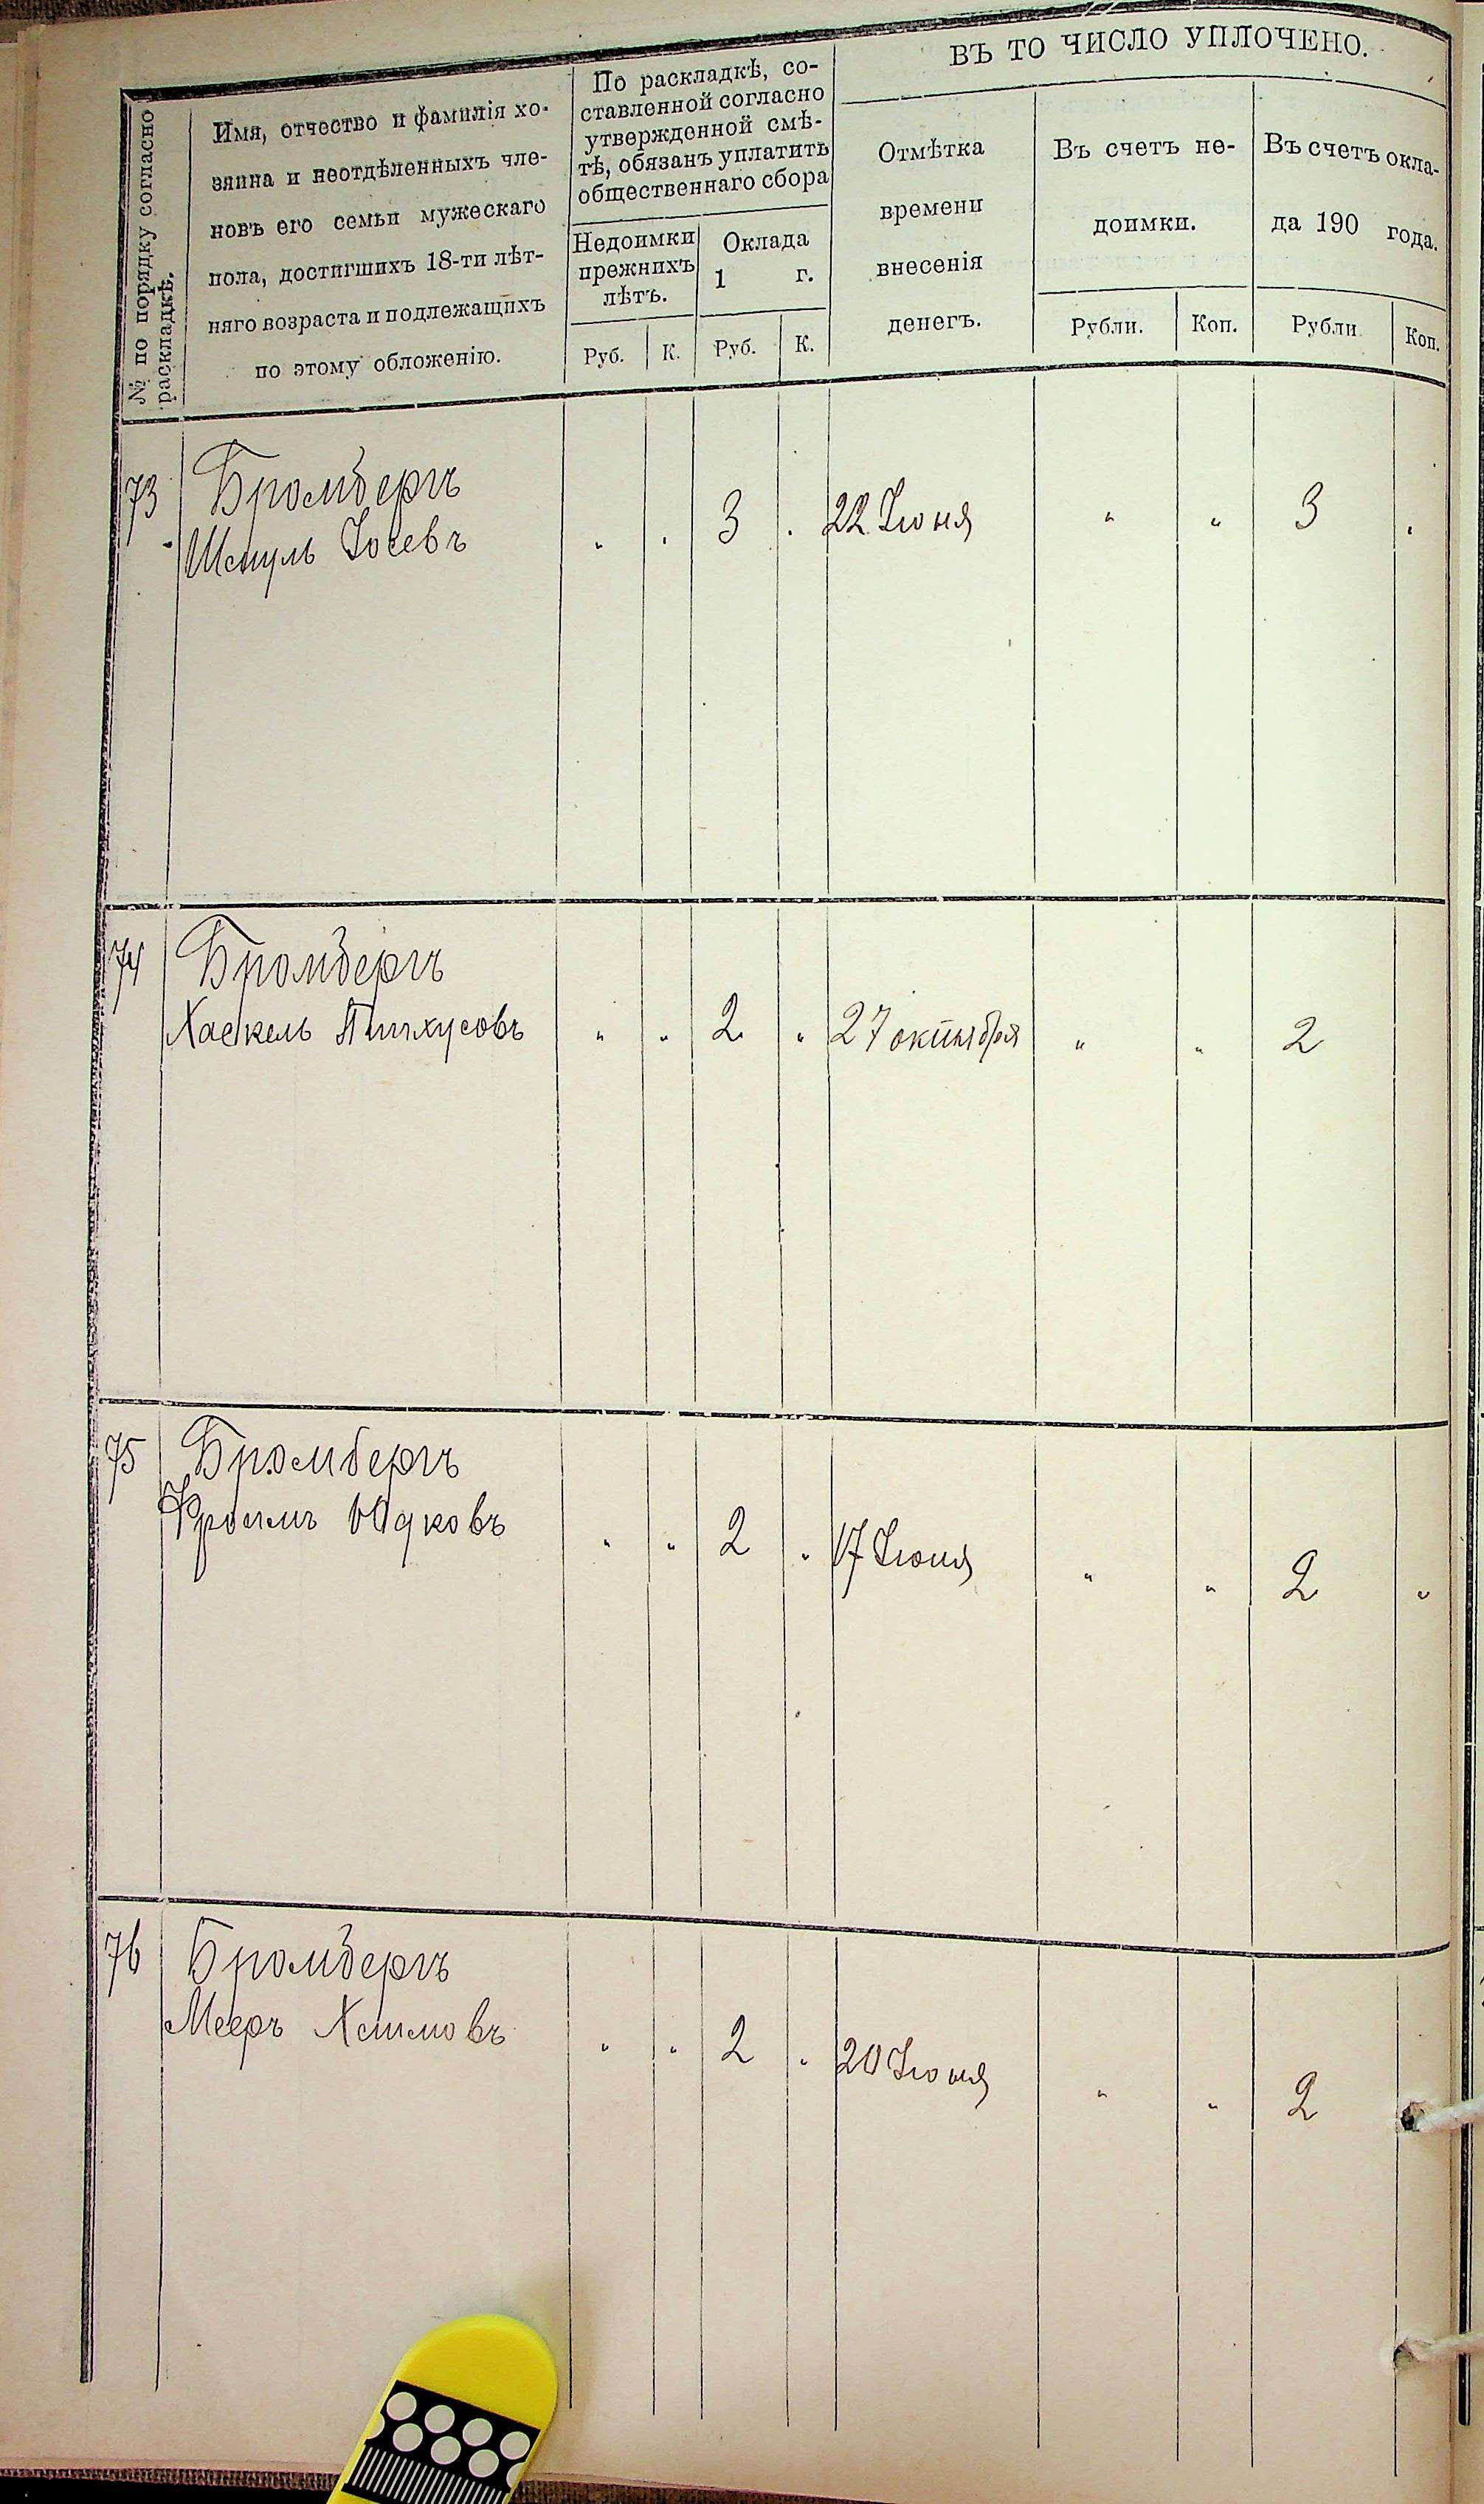 ВЪ ТО ЧИСЛО УПЛОЧЕНО.
№ по порядку согласно
раскладкѣ.
Имя, отчество и фамилія хо-
зяина и неотдѣленныхъ чле-
новъ его семьи мужескаго
пола, достигшихъ 18-ти лѣт-
няго возраста и подлежащихъ
по этому обложенію.
По раскладкѣ, со-
ставленной согласно
утвержденной смѣ-
тѣ, обязанъ уплатить
общественнаго сбора
Недоимки
прежнихъ
лѣтъ.
Оклада
1 г.
Руб. К. Руб. К.
Отмѣтка
времени
внесенія
денегъ.
Въ счетъ не-
доимки.
Рубли. Коп.
Въ счетъ окла-
да 190 года.
Рубли Коп.
73 Бромбергъ
Шмуль Іосевъ " " 3 " 22 Іюня " " 3 "
74 Бромбергъ
Хаскель Пинхусовъ " " 2 " 27 октября " " 2
75 Бромбергъ
Фроимъ Юдковъ " " 2 " 17 Іюня " " 2 "
76 Бромбергъ
Мееръ Хаимовъ " " 2 " 20 Іюня " " 2